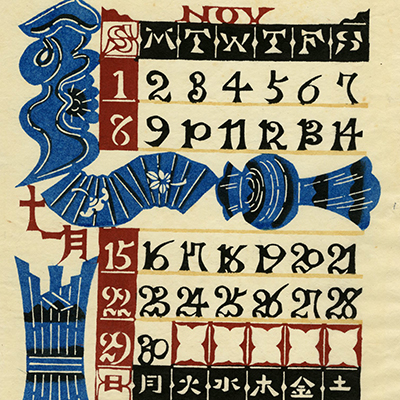 NOV
S M T W T F S
1 2 3 4 5 6 7
8 9 10 11 12 13 14
十一月
15 16 17 18 19 20 21
22 23 24 25 26 27 28
29 30
日 月 火 水 木 金 土